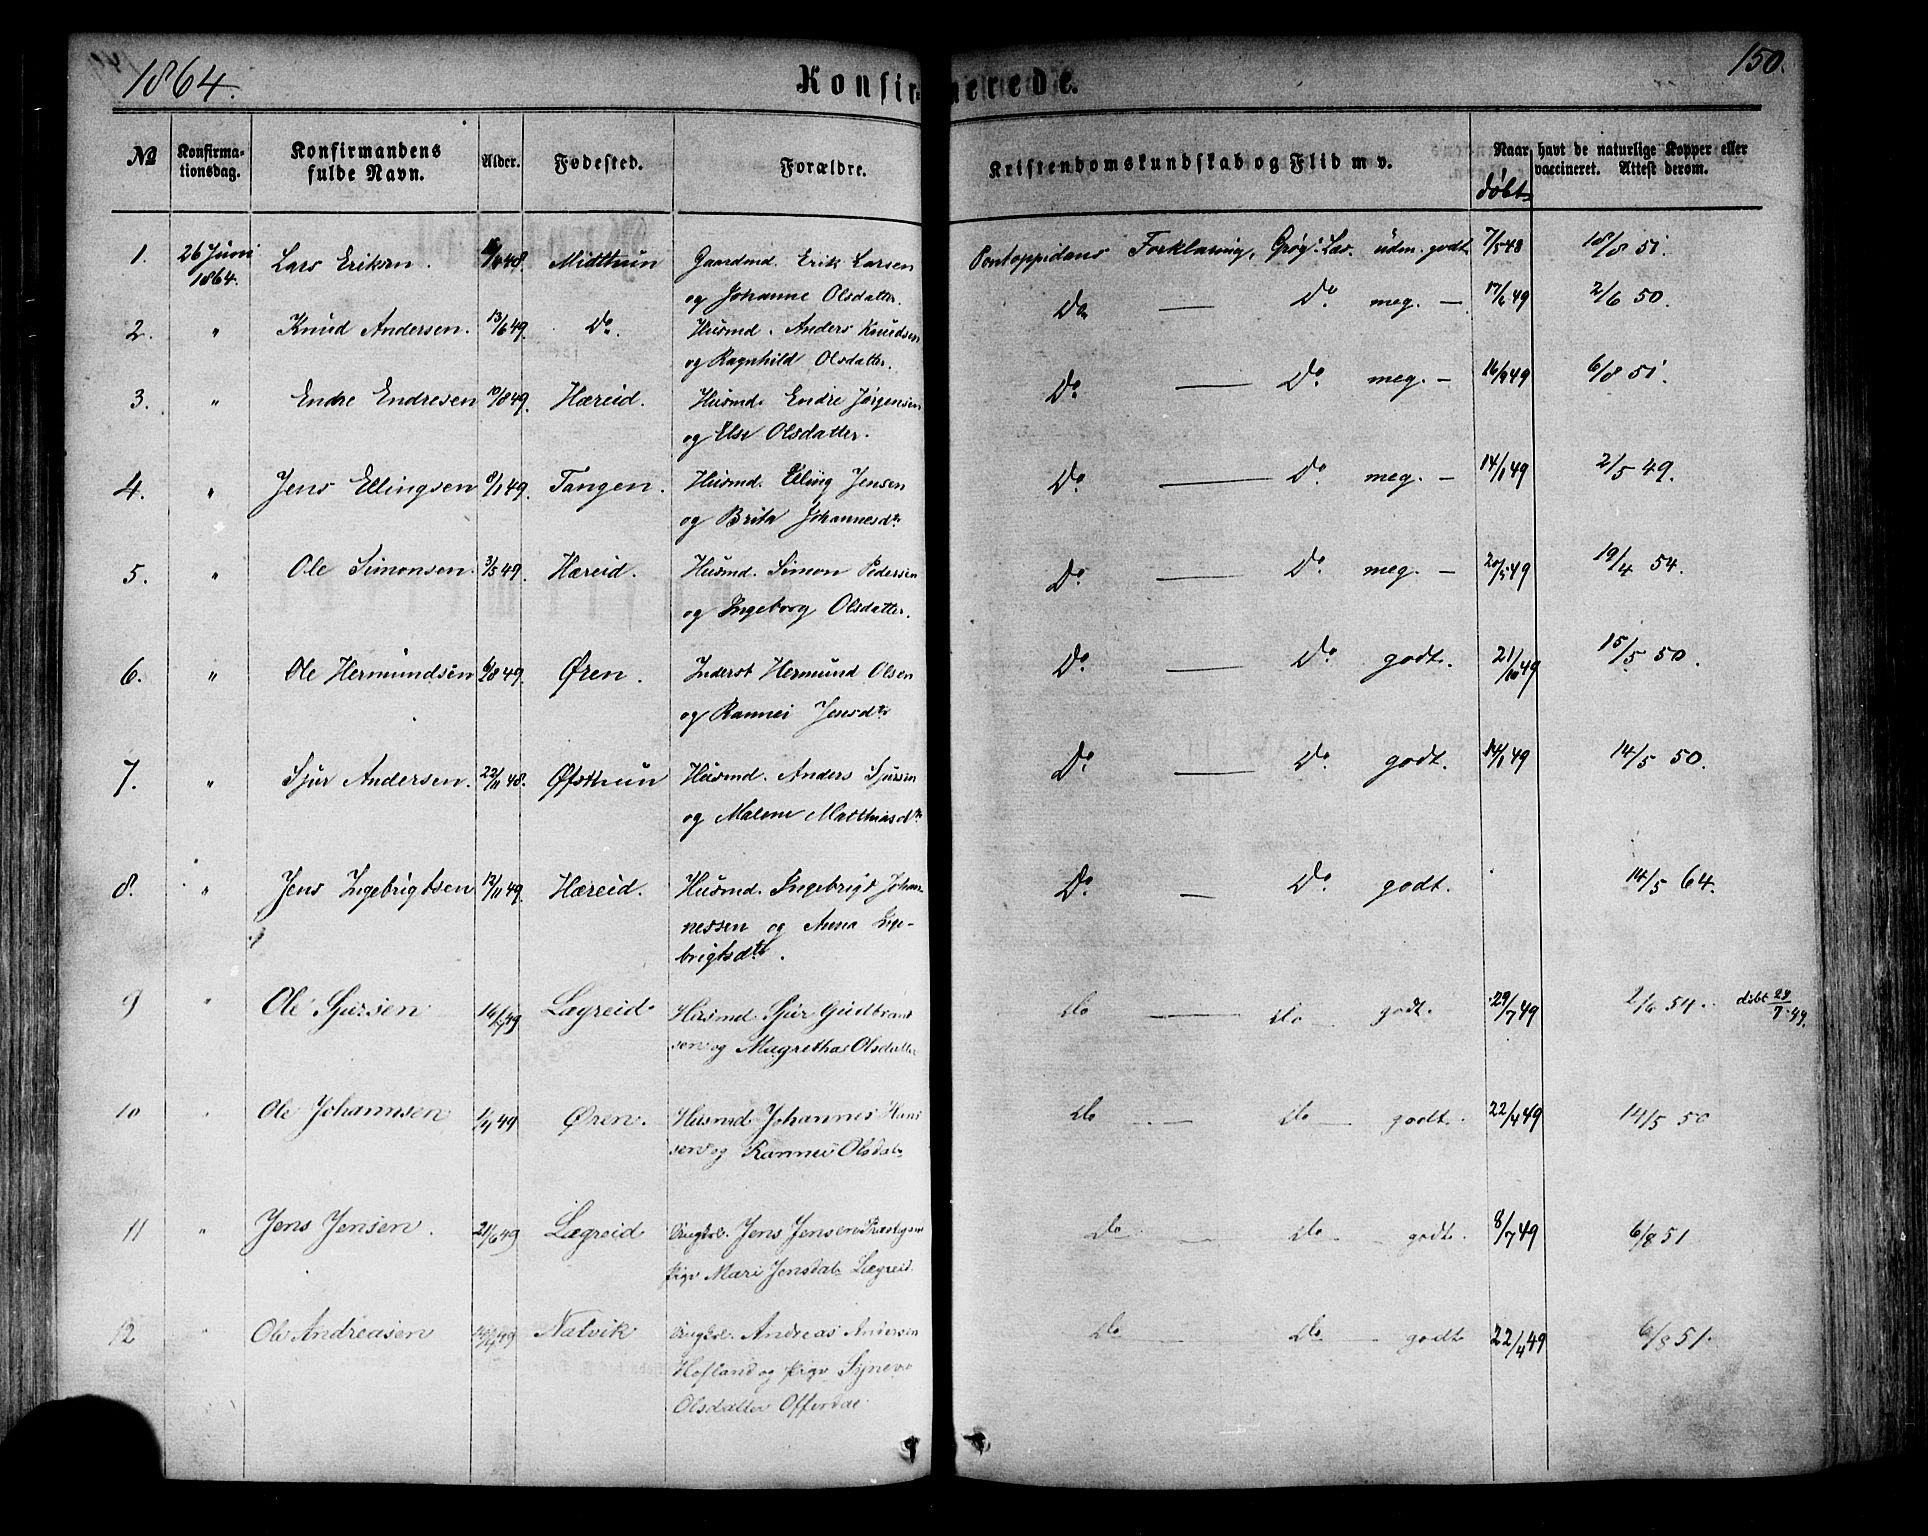 1864. Konfirmerede. 150.
№ Konfirma-tionsdag. Konfirmandens fulde Navn. Alder. Fødested. Forældre. Kristendomskundskab og Flid m v. Naar havt de naturlige Kopper eller vaccineret. Attest derom.
døbt
1. 26 Juni 1864. Lars Eriksen. Midtthun Gaardmd. Erik Larsen Pontoppidans Forklaring, udm. godt 7/5 48 18/8 51.
og Johanne Olsdatter.
2. " Knud Andersen. 13/6 49. Do. Husmd. Anders Knudsen Do — Do meg. — 17/6 49 2/6 50.
og Ragnhild Olsdatter.
3. " Endre Endresen 10/8 49. Hæreid. Husmd. Endre Jørgensen Do — Do meg. — 16/9 49 6/8 51.
og Else Olsdatter.
4. " Jens Ellingsen 8/1 49. Tangen. Husmd. Elling Jensen Do — Do meg. — 14/1 49 2/5 49.
og Brita Johannesdtr
5. " Ole Simonsen. 3/5 49. Hæreid. Husmd. Simon Pedersen Do — Do meg. — 20/5 49 19/4 54.
og Ingeborg Olsdatter.
6. " Ole Hermundsen 8 49. Øren. Inderst Hermund Olsen Do — Do godt. 21/10 49 15/5 50.
og Rannei Jensdtr
7. " Sjur Andersen. 22/11 48. Øfsthun Husmd. Anders Sjursen Do — Do godt. 14/1 49 14/5 50.
og Malene Matthiasdtr
8. " Jens Ingebrigtsen 12/11 49. Hæreid. Husmd. Ingebrigt Johan- Do — Do godt. 14/5 64.
nessen og Anna Inge-
brigtsdtr.
9 " Ole Sjursen 16/ 49 Lægreid Husmd. Sjur Gudbrand do — do — godt. 29/7 49 2/6 54. døbt 29/7 49.
sen og Magretha Olsdatter
10 " Ole Johannesen 1/4 49 Øren. Husmd. Johannes Hans do — do — godt. 22/4 49 14/5 50
sen og Rannei Olsdatr
11 " Jens Jensen. 21/6 49 Lægreid Ungkrl. Jens Jensen do — do — godt. 8/7 49 6/8 51
Pige Mari Jensdatr Lægreid.
12 " Ole Andreasen 49 Natvik Ungkrl. Andreas Andersen do — do — godt 22/4 49 6/8 51.
Hofland og Pige Synneve
Olsdatter Offerdal